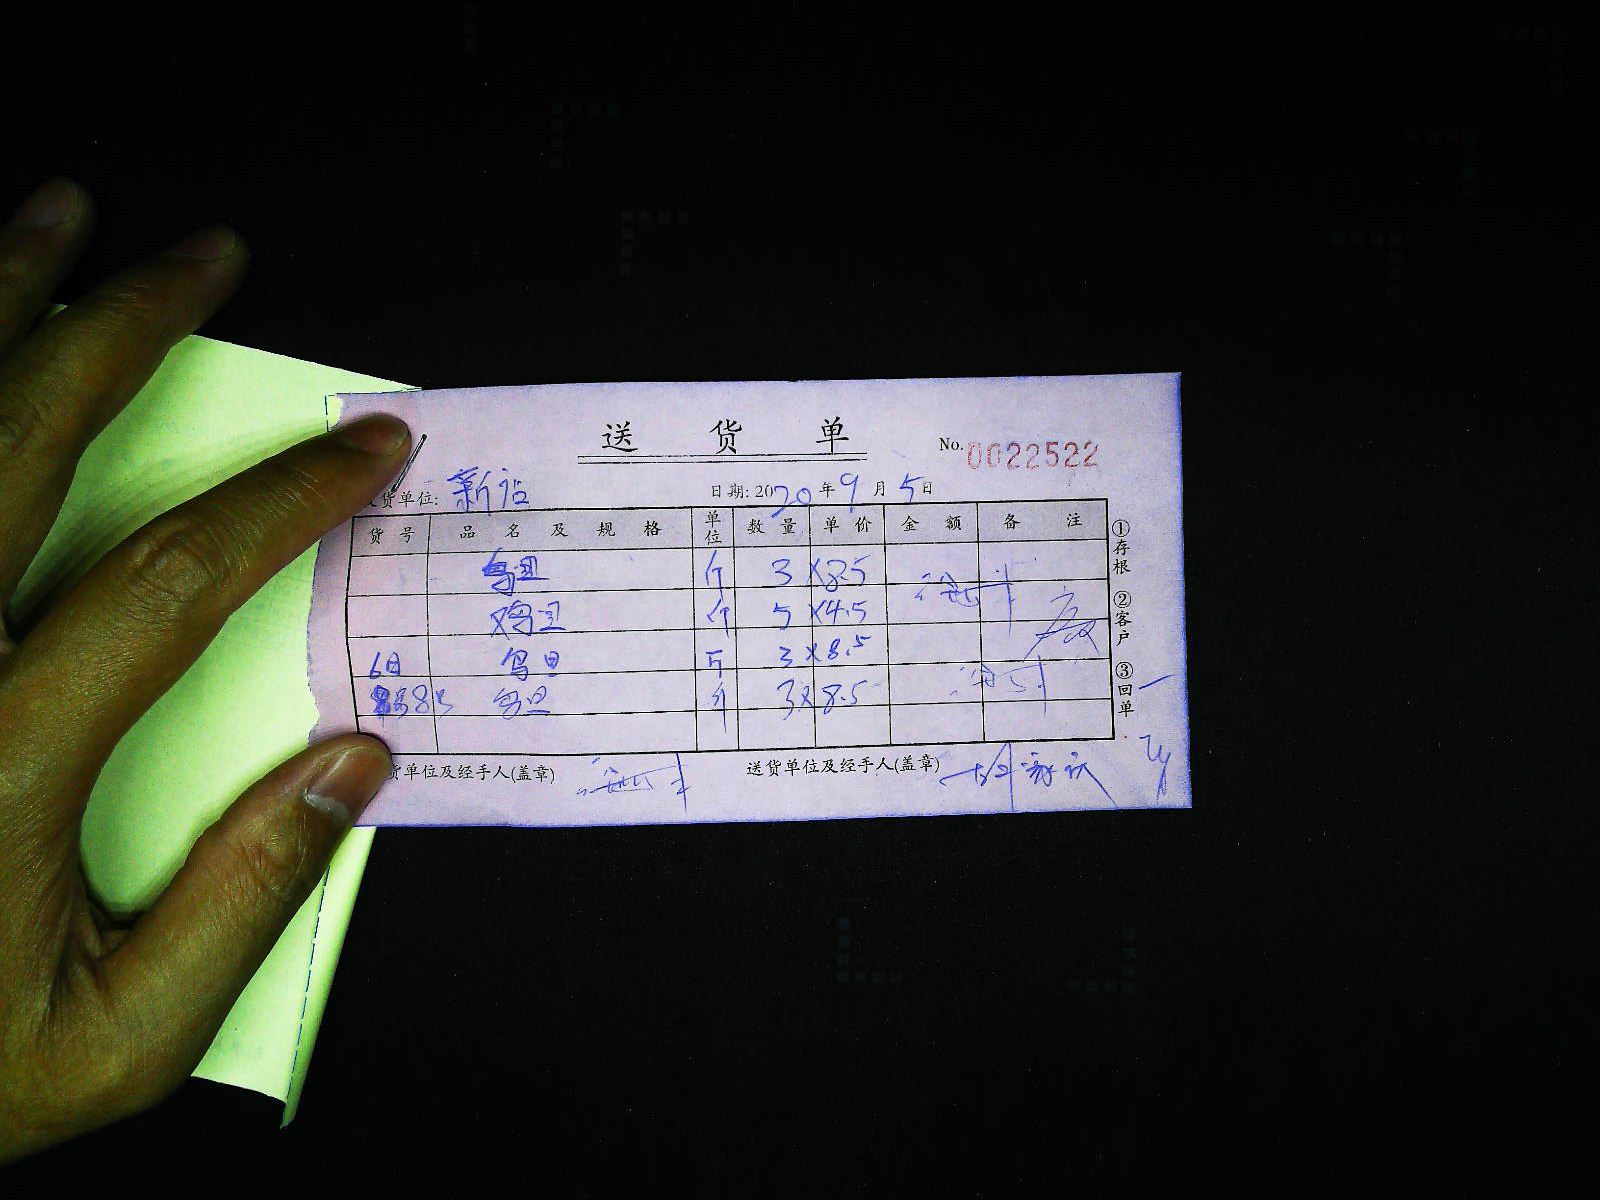 送 货 单
No. 0022522
货单位: 新站 日期: 2020 年 9 月 5 日
货 号 品 名 及 规 格 单位 数 量 单 价 金 额 备 注
旦 斤 3 ×8.5
鸡旦 斤 5 ×4.5
6日 旦 斤 3 ×8.5
旦 斤 3 ×8.5
①存根 ②客户 ③回单
货单位及经手人(盖章) 送货单位及经手人(盖章)